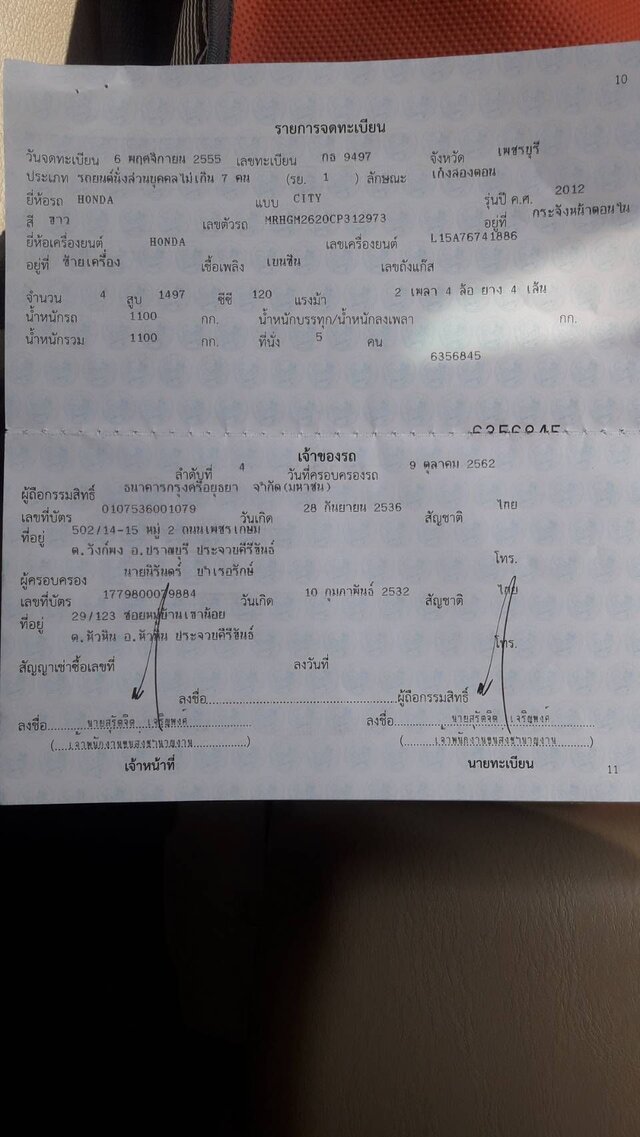 10
รายการจดทะเบียน
วันจดทะเบียน 6 พฤศจิกายน 2555 เลขทะเบียน กธ 9497 จังหวัด เพชรบุรี
ประเภท รถยนต์นั่งส่วนบุคคลไม่เกิน 7 คน (รย. 1 ) ลักษณะ เก๋งสองตอน
ยี่ห้อรถ HONDA แบบ CITY รุ่นปี ค.ศ. 2012
สี ขาว เลขตัวรถ MRHGM2620CP312973 อยู่ที่ กระจังหน้าตอนใน
ยี่ห้อเครื่องยนต์ HONDA เลขเครื่องยนต์ L15A76741886
อยู่ที่ ซ้ายเครื่อง เชื้อเพลิง เบนซิน เลขถังแก๊ส
จำนวน 4 สูบ 1497 ซีซี 120 แรงม้า 2 เพลา 4 ล้อ ยาง 4 เส้น
น้ำหนักรถ 1100 กก. น้ำหนักบรรทุก/น้ำหนักลงเพลา กก.
น้ำหนักรวม 1100 กก. ที่นั่ง 5 คน
6356845
6356845
เจ้าของรถ
ลำดับที่ 4 วันที่ครอบครองรถ 9 ตุลาคม 2562
ผู้ถือกรรมสิทธิ์ ธนาคารกรุงศรีอยุธยา จำกัด(มหาชน)
เลขที่บัตร 0107536001079 วันเกิด 28 กันยายน 2536 สัญชาติ ไทย
ที่อยู่ 502/14-15 หมู่ 2 ถนนเพชรเกษม
ต.วังก์พง อ.ปราณบุรี ประจวบคีรีขันธ์ โทร.
ผู้ครอบครอง นายนิรันดร์ บำเรอรักษ์
เลขที่บัตร 1779800079884 วันเกิด 10 กุมภาพันธ์ 2532 สัญชาติ ไทย
ที่อยู่ 29/123 ซอยหมู่บ้านเขาน้อย
ต.หัวหิน อ.หัวหิน ประจวบคีรีขันธ์ โทร.
สัญญาเช่าซื้อเลขที่ ลงวันที่
ลงชื่อ ผู้ถือกรรมสิทธิ์
ลงชื่อ นายสุรัตจิต เจริญพงค์ ลงชื่อ นายสุรัตจิต เจริญพงค์
( เจ้าพนักงานขนส่งชำนาญงาน ) ( เจ้าพนักงานขนส่งชำนาญงาน )
เจ้าหน้าที่ นายทะเบียน
11